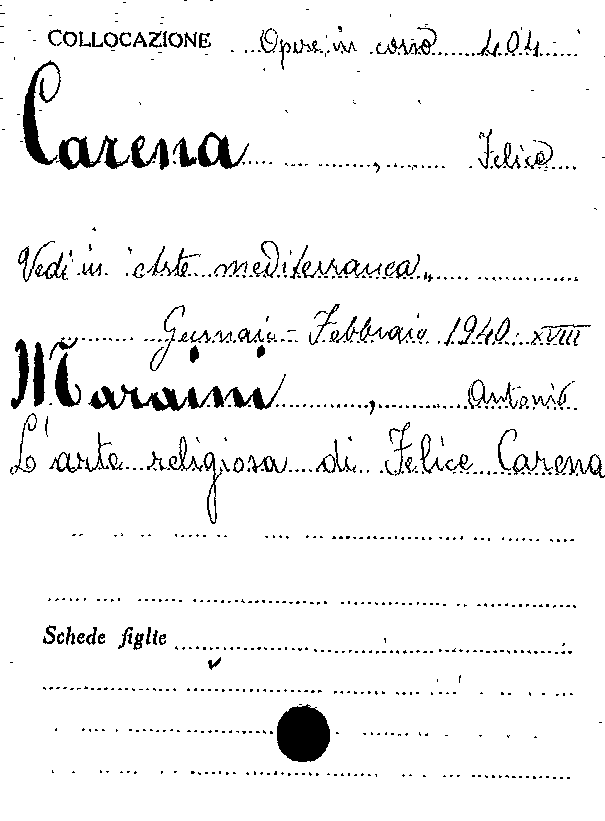 COLLOCAZIONE Opere in corso 404
Carena, Felice
Vedi in "Arte mediterranea"
Gennaio - Febbraio 1940. XVIII
Maraini, Antonio
L'arte religiosa di Felice Carena
Schede figlie